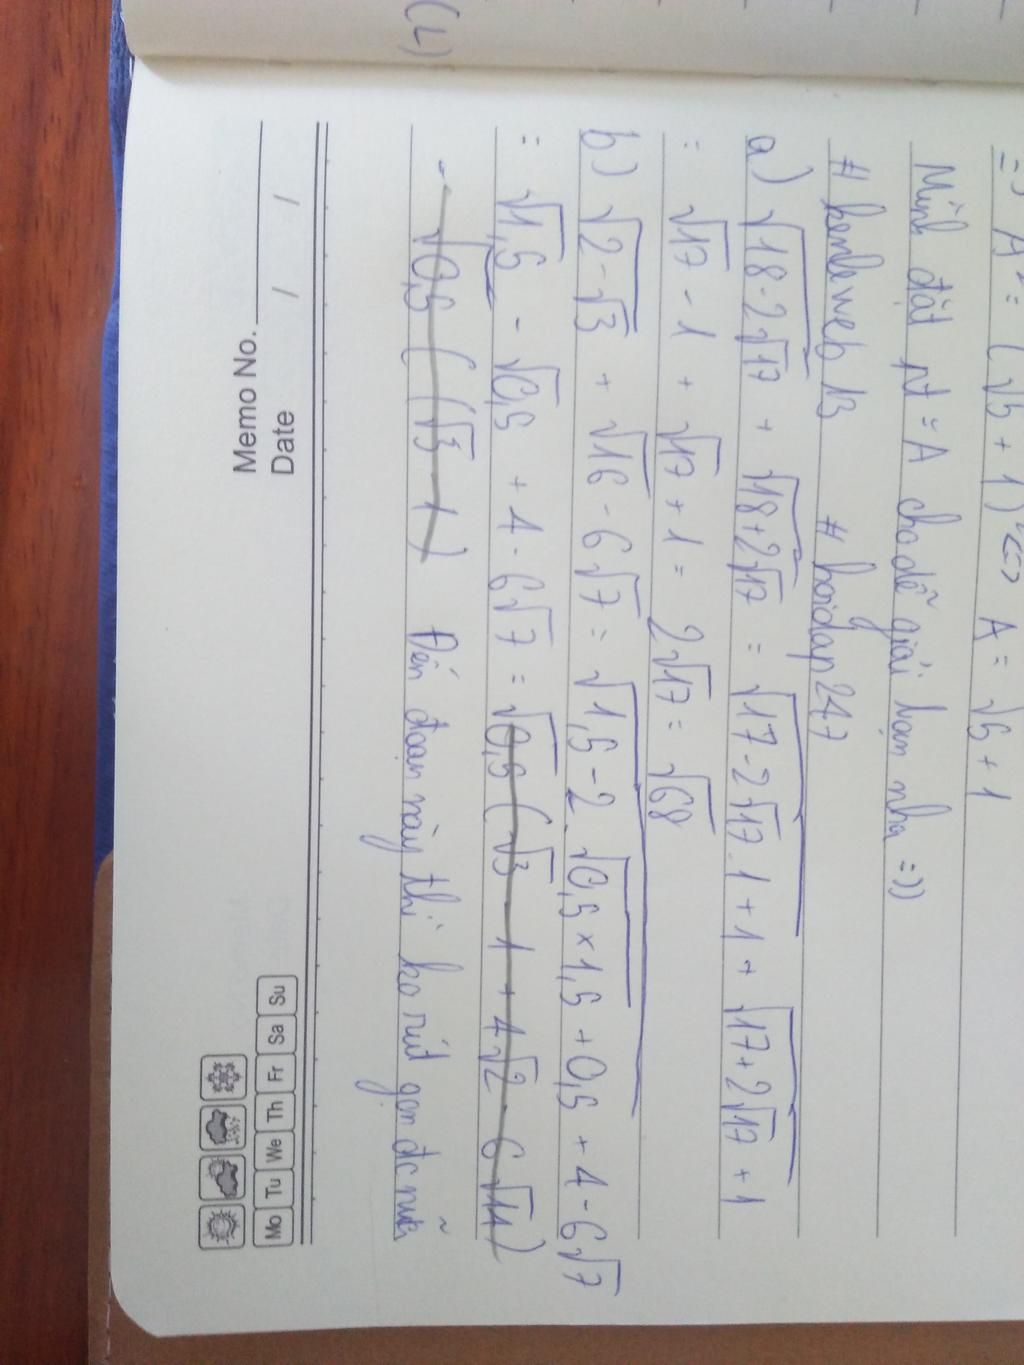 (L)
=> A² = (√5 + 1)² <=> A = √5 + 1
Mình đặt pt = A cho dễ giải bạn nha =))
# kenhweb 13 # hoidap247
a) √18-2√17 + √18+2√17 = √17-2√17.1+1 + √17+2√17+1
= √17 - 1 + √17 + 1 = 2√17 = √68
b) √2-√3 + √16 - 6√7 = √1,5-2.√0,5×1,5+0,5 + 4-6√7
= √1,5 - √0,5 + 4 - 6√7 = √0,5(√3 - 1 + 4√2 - 6√14)
= √0,5 ((√3 - 1) Đến đoạn này thì ko rút gọn đc nữa
Memo No.
Date / /
Mo Tu We Th Fr Sa Su